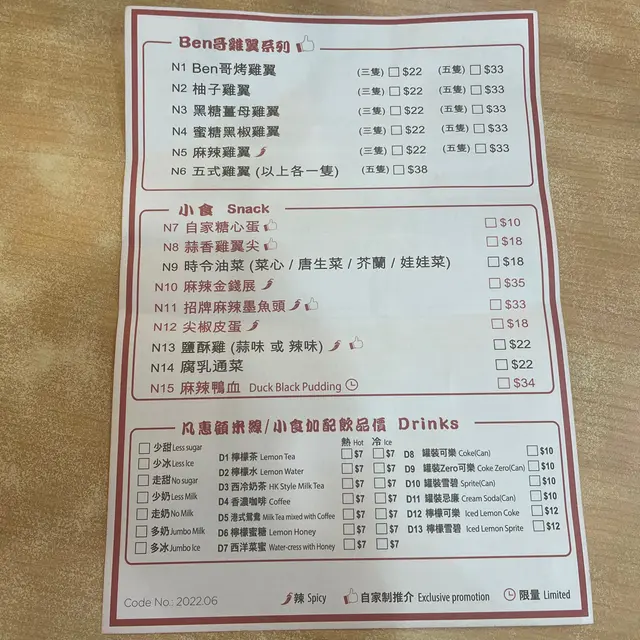 Ben哥雞翼系列
N1 Ben哥烤雞翼 (三隻) $22 (五隻) $33
N2 柚子雞翼 (三隻) $22 (五隻) $33
N3 黑糖薑母雞翼 (三隻) $22 (五隻) $33
N4 蜜糖黑椒雞翼 (三隻) $22 (五隻) $33
N5 麻辣雞翼 (三隻) $22 (五隻) $33
N6 五式雞翼 (以上各一隻) (五隻) $38
小食 Snack
N7 自家糖心蛋 $10
N8 蒜香雞翼尖 $18
N9 時令油菜 (菜心 / 唐生菜 / 芥蘭 / 娃娃菜) $18
N10 麻辣金錢展 $35
N11 招牌麻辣墨魚頭 $33
N12 尖椒皮蛋 $18
N13 鹽酥雞 (蒜味 或 辣味) $22
N14 腐乳通菜 $22
N15 麻辣鴨血 Duck Black Pudding $34
凡惠顧米線/小食加配飲品價 Drinks
熱 Hot 冷 Ice
少甜 Less sugar
少冰 Less Ice
走甜 No sugar
少奶 Less Milk
走奶 No Milk
多奶 Jumbo Milk
多冰 Jumbo Ice
D1 檸檬茶 Lemon Tea $7 $7
D2 檸檬水 Lemon Water $7 $7
D3 西冷奶茶 HK Style Milk Tea $7 $7
D4 香濃咖啡 Coffee $7 $7
D5 港式鴛鴦 Milk Tea mixed with Coffee $7 $7
D6 檸檬蜜糖 Lemon Honey $7 $7
D7 西洋菜蜜 Water-cress with Honey $7 $7
D8 罐裝可樂 Coke(Can) $10
D9 罐裝Zero可樂 Coke Zero(Can) $10
D10 罐裝雪碧 Sprite(Can) $10
D11 罐裝忌廉 Cream Soda(Can) $10
D12 檸檬可樂 Iced Lemon Coke $12
D13 檸檬雪碧 Iced Lemon Sprite $12
Code No.: 2022.06 辣 Spicy 自家制推介 Exclusive promotion 限量 Limited